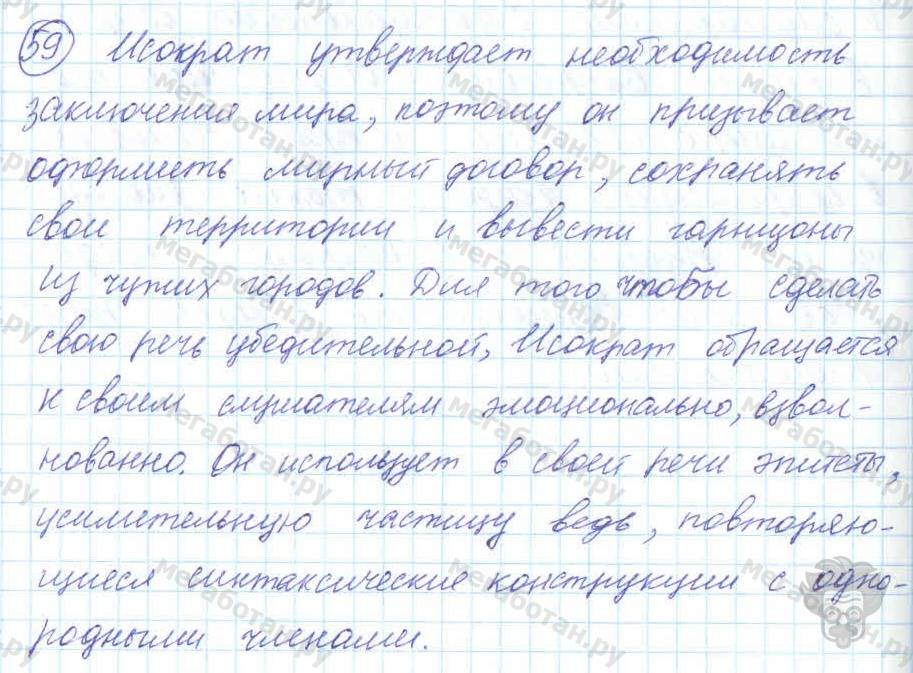 59 Исократ утверждает необходимость
заключения мира, поэтому он призывает
оформить мирный договор, сохранять
свои территории и вывести гарнизоны
из чужих городов. Для того чтобы сделать
свою речь убедительной, Исократ обращается
к своим слушателям эмоционально, взвол-
нованно. Он использует в своей речи эпитеты,
усилительную частицу ведь, повторяю-
щиеся синтаксические конструкции с одно-
родными членами.
мегаботан.ру